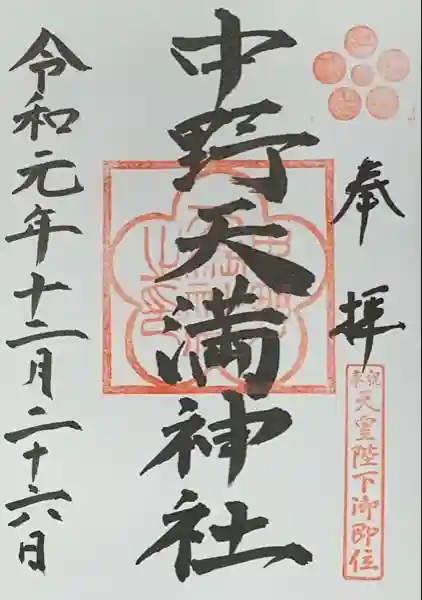 奉拝
奉祝
天皇陛下御即位
中野天満神社
令和元年十二月二十六日